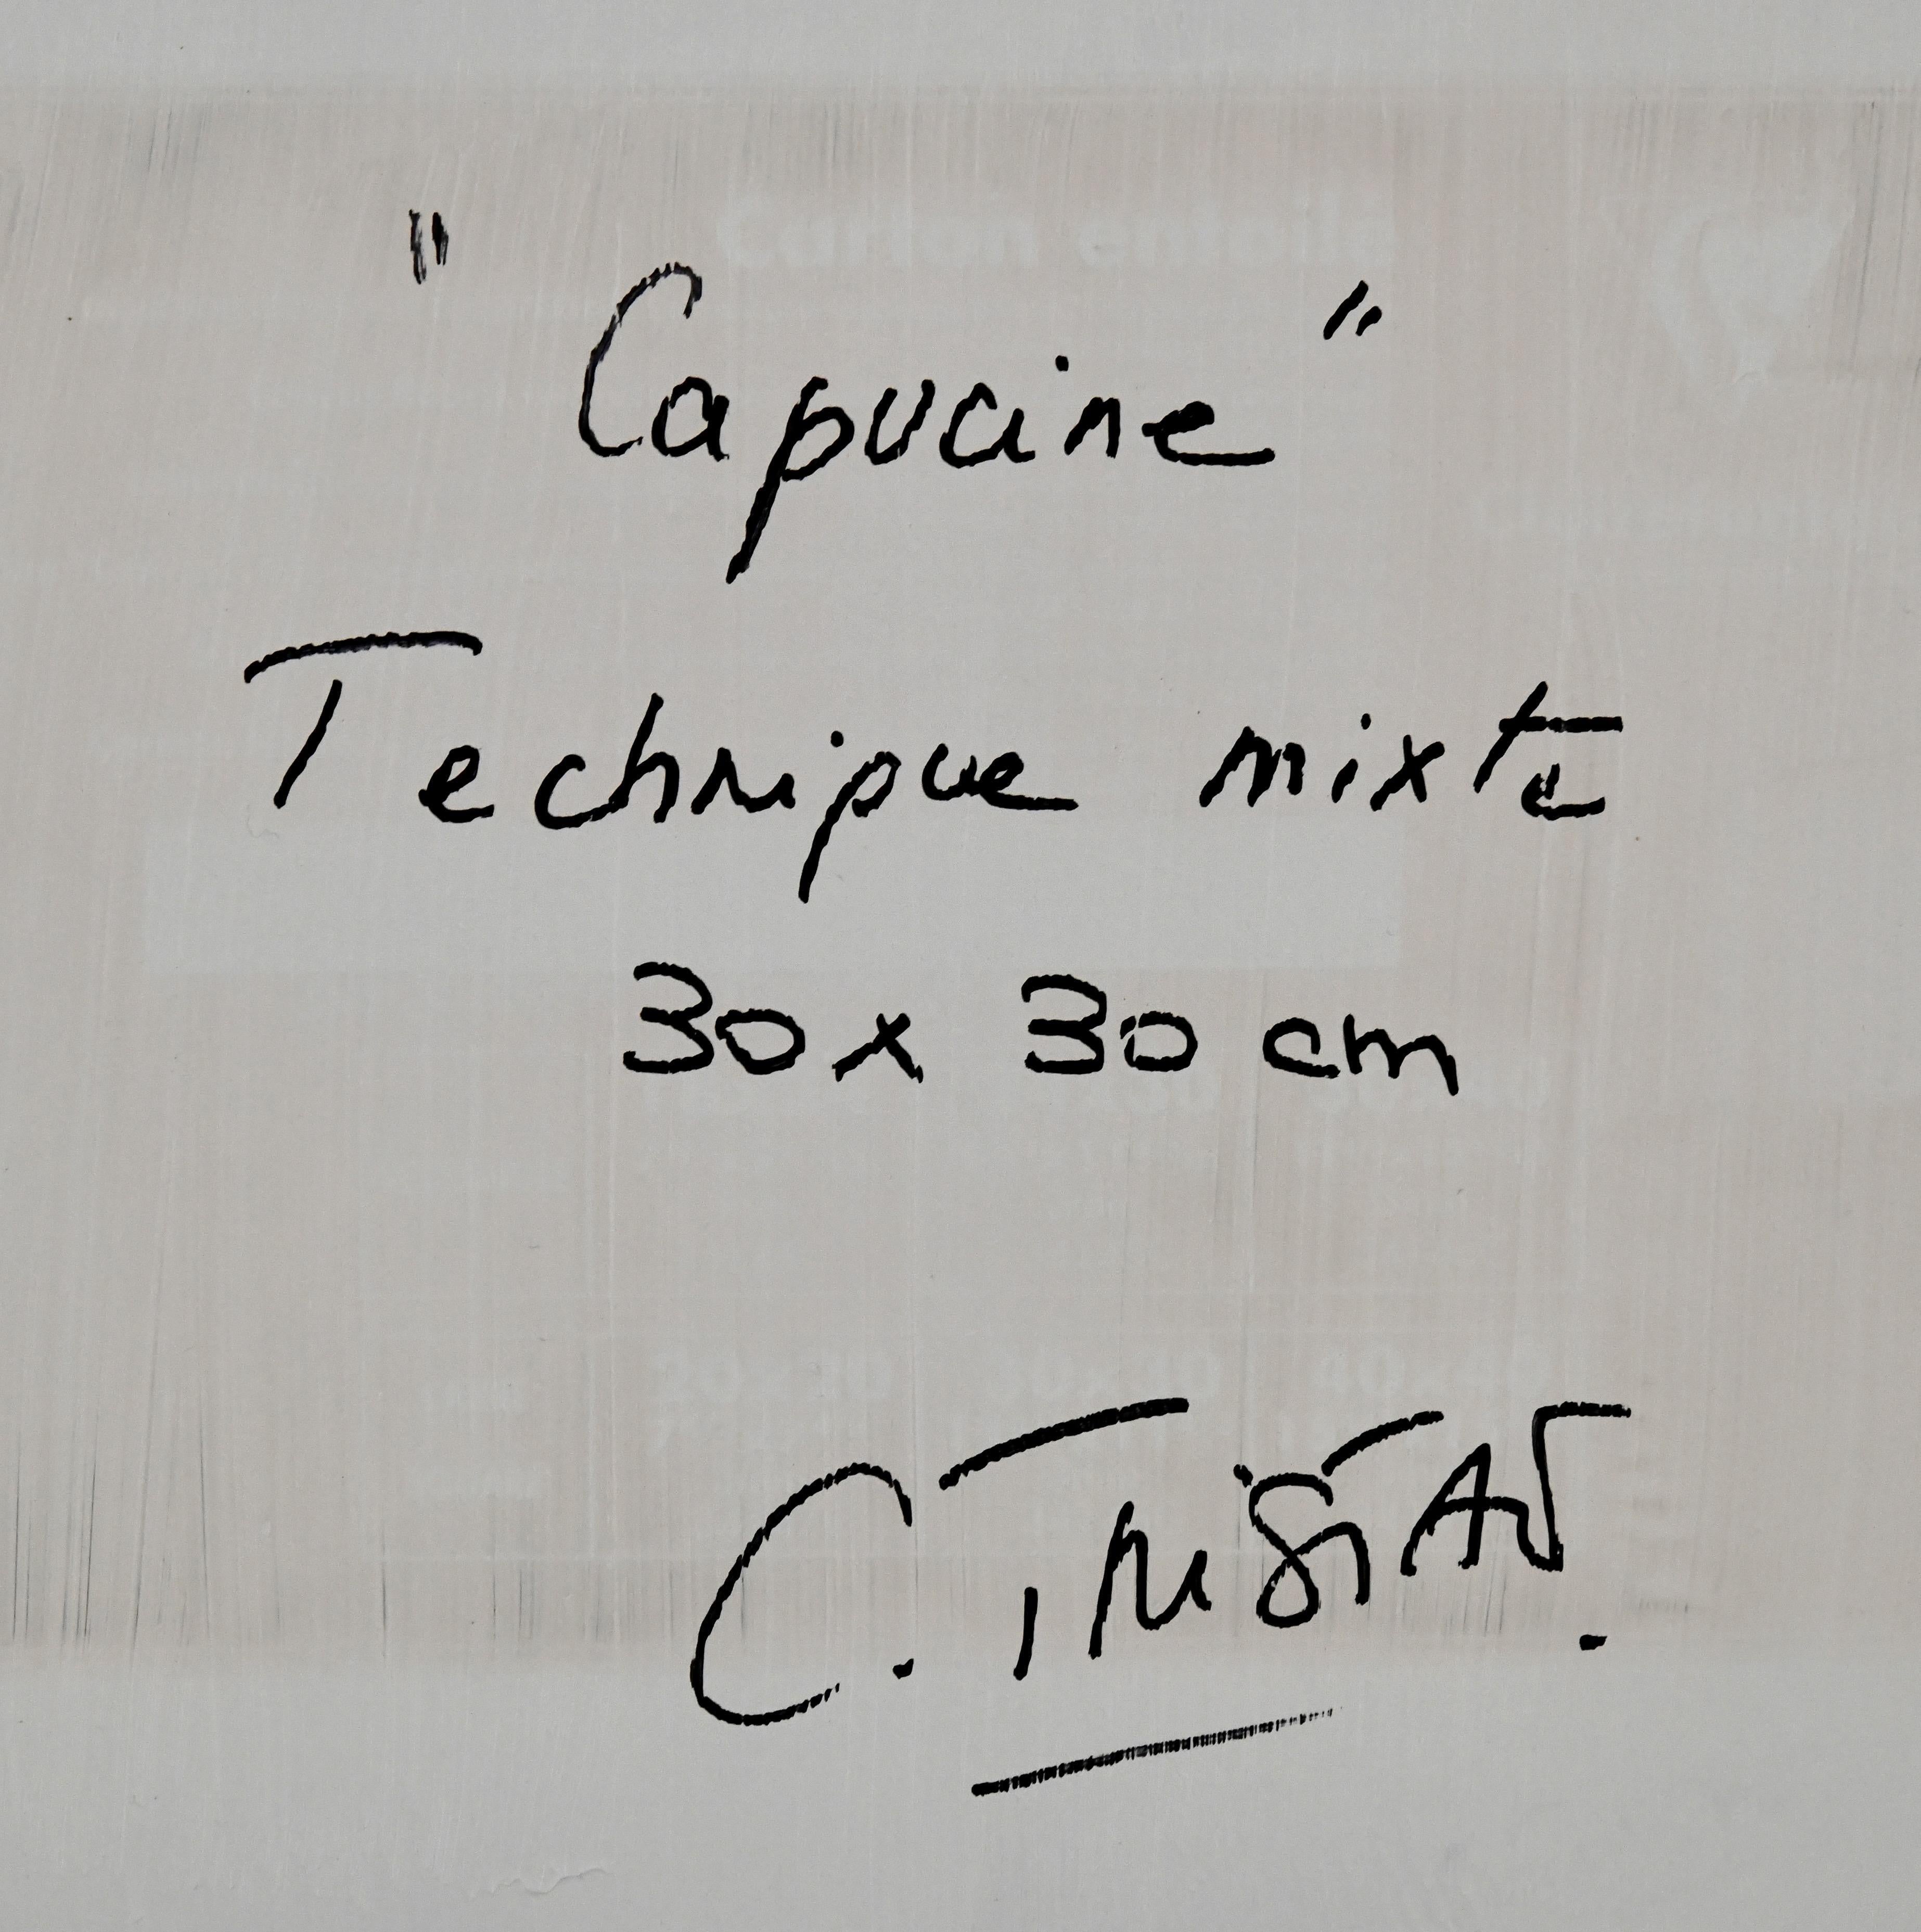 "Capucine"
Technique mixte
30 x 30 cm
C.